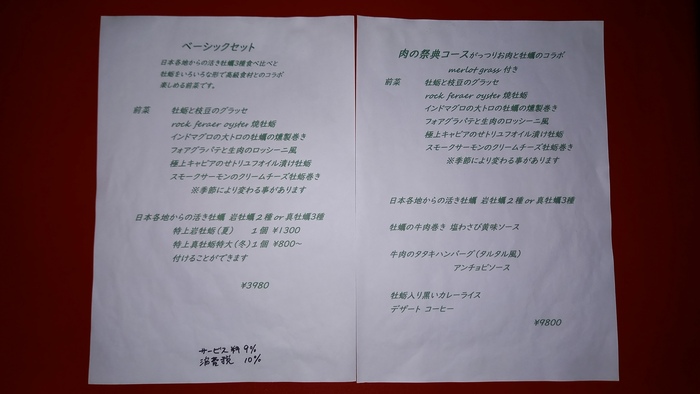 ベーシックセット
日本各地からの活き牡蠣3種食べ比べと
牡蛎をいろいろな形で高級食材とのコラボ
楽しめる前菜です。
前菜 牡蛎と枝豆のグラッセ
rock feraer oyster 焼牡蛎
インドマグロの大トロの牡蠣の燻製巻き
フォアグラパテと生肉のロッシーニ風
極上キャビアのせトリュフオイル漬け牡蛎
スモークサーモンのクリームチーズ牡蛎巻き
※季節により変わる事があります
日本各地からの活き牡蠣 岩牡蠣2種 or 真牡蠣3種
特上岩牡蛎(夏) 1個 ¥1300
特上真牡蛎特大(冬)1個 ¥800~
付けることができます
¥3980
サービス料 9%
消費税 10%
肉の祭典コースがっつりお肉と牡蠣のコラボ
merlot grass 付き
前菜 牡蛎と枝豆のグラッセ
rock feraer oyster 焼牡蛎
インドマグロの大トロの牡蠣の燻製巻き
フォアグラパテと生肉のロッシーニ風
極上キャビアのせトリュフオイル漬け牡蛎
スモークサーモンのクリームチーズ牡蛎巻き
※季節により変わる事があります
日本各地からの活き牡蠣 岩牡蠣2種 or 真牡蠣3種
牡蠣の牛肉巻き 塩わさび黄味ソース
牛肉のタタキハンバーグ(タルタル風)
アンチョビソース
牡蛎入り黒いカレーライス
デザート コーヒー
¥9800